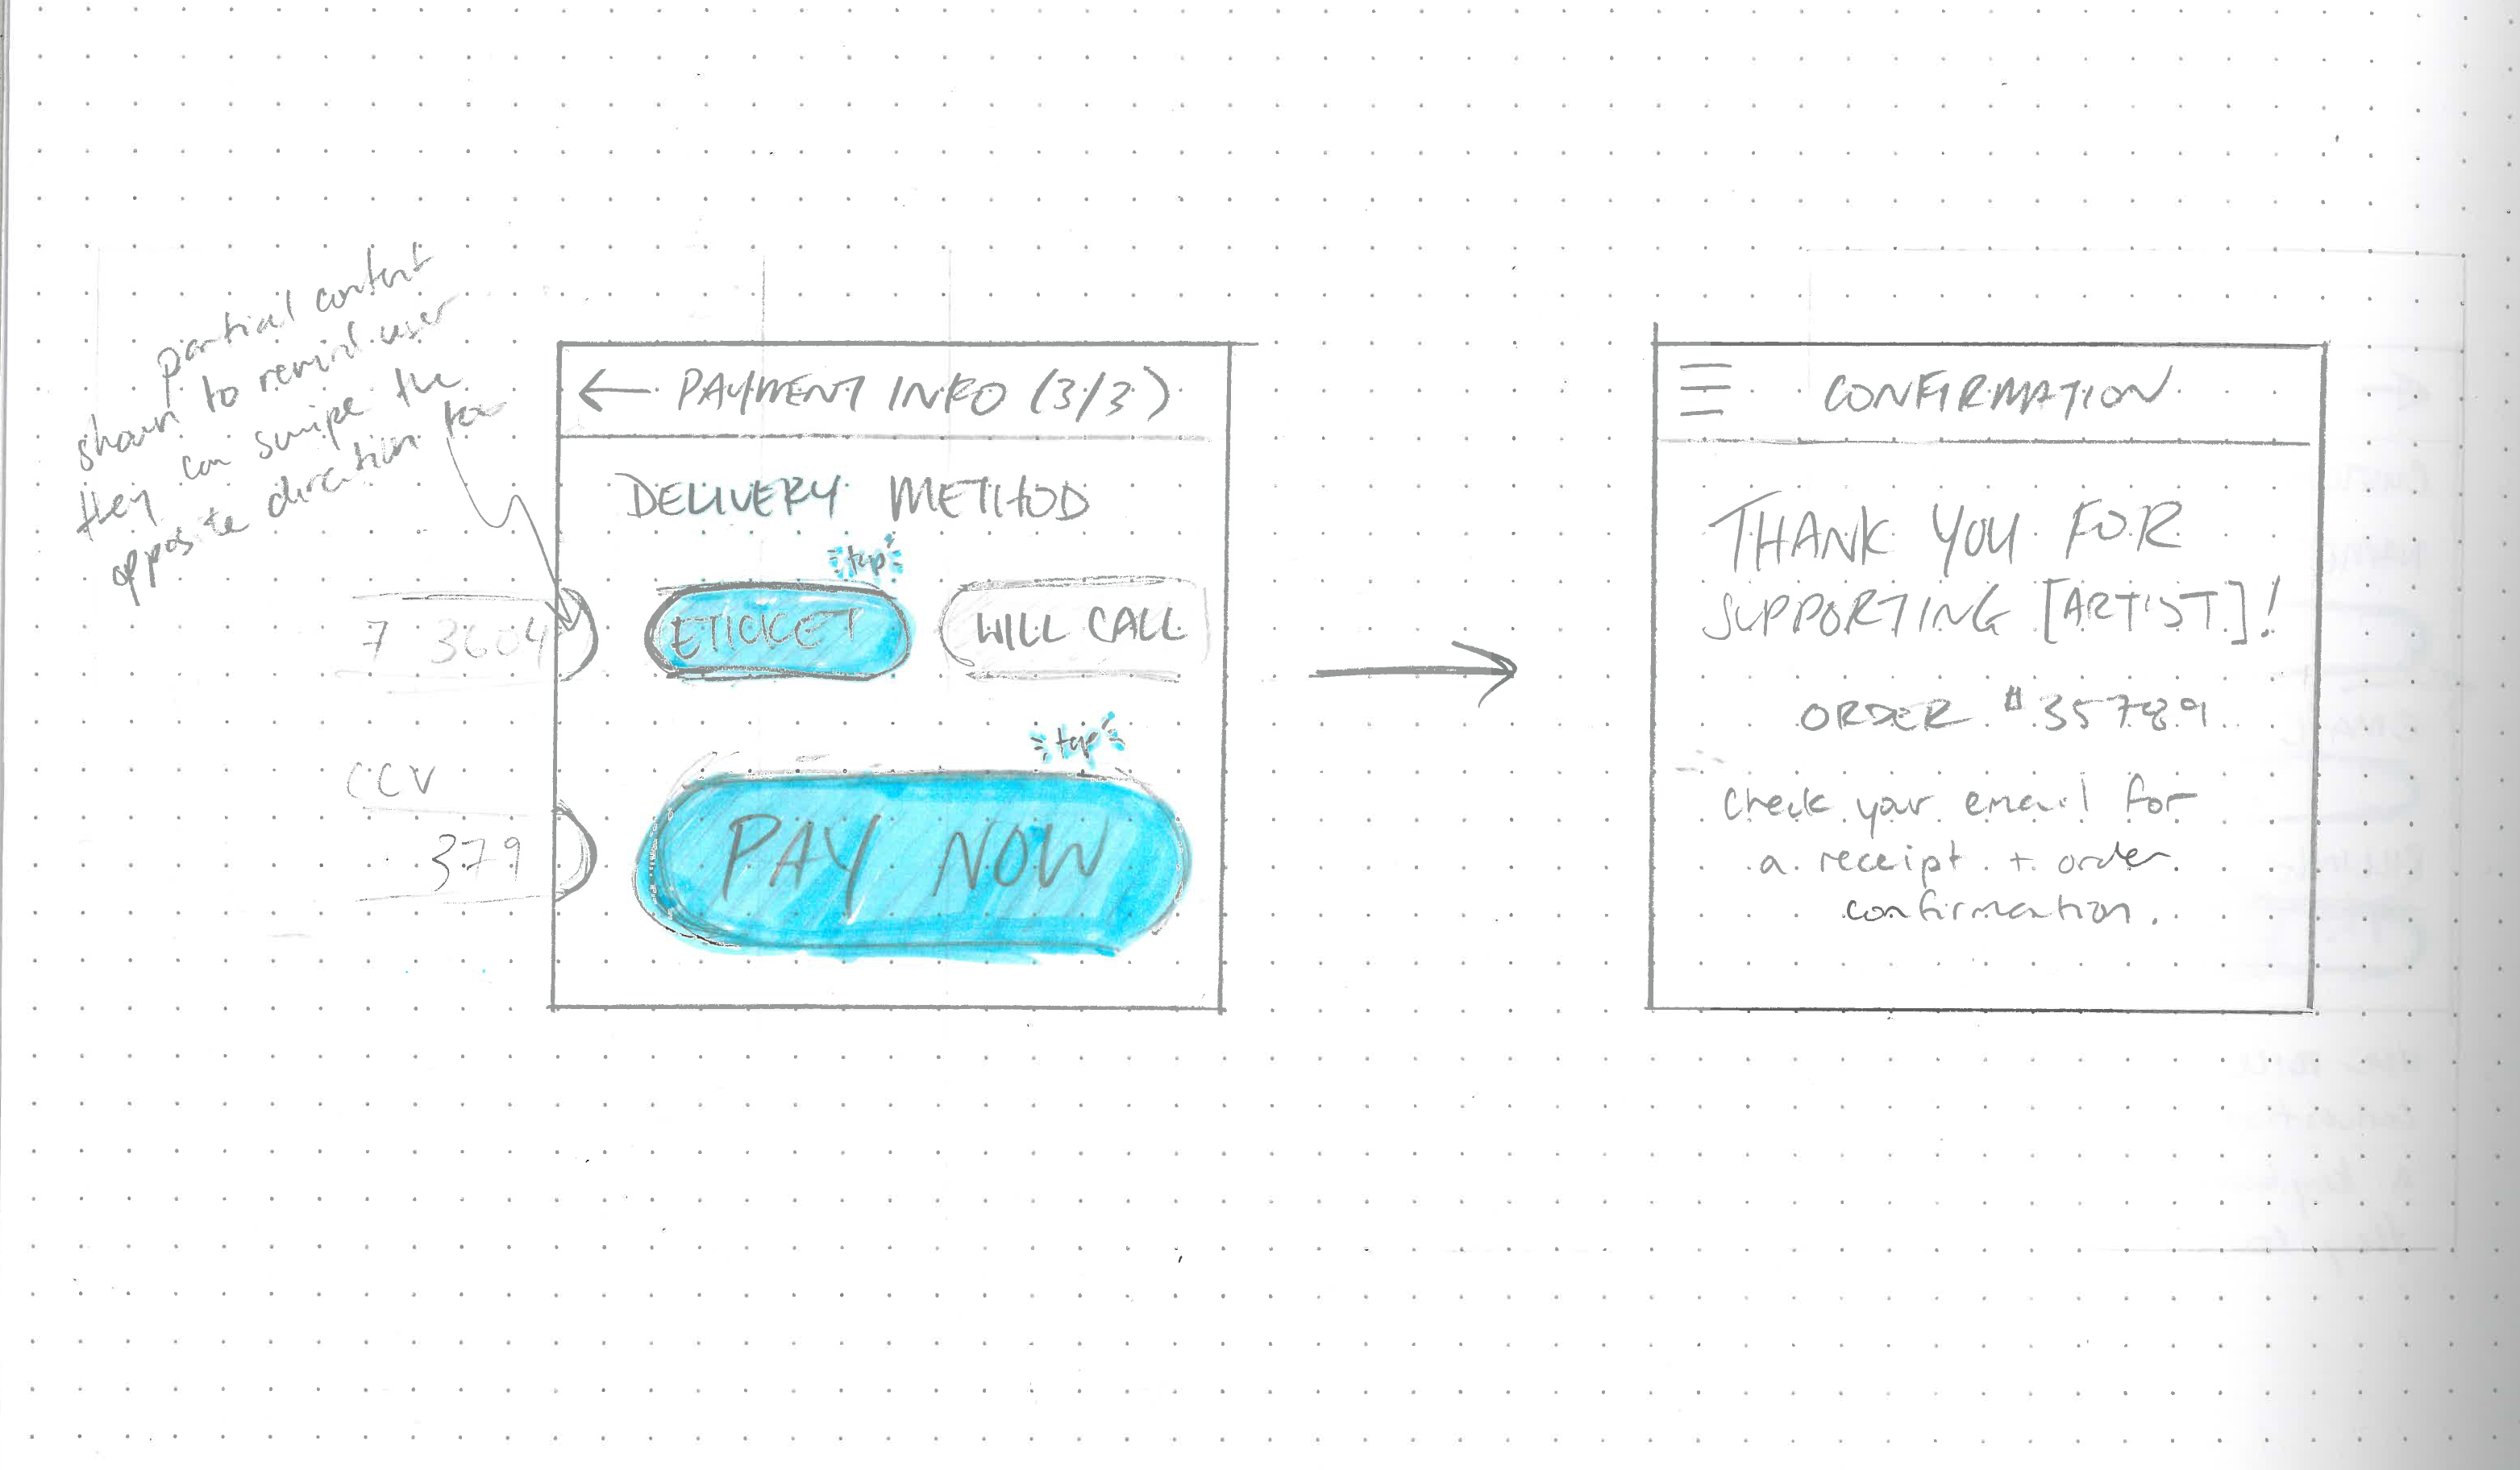 partial content
shown to remind user
they can swipe the
opposite direction too
← PAYMENT INFO (3/3)
DELIVERY METHOD
tap
7 3604
ETICKET
WILL CALL
tap
CCV
379
PAY NOW
CONFIRMATION
THANK YOU FOR
SUPPORTING [ARTIST]!
ORDER #35789
check your email for
a receipt + order
confirmation.